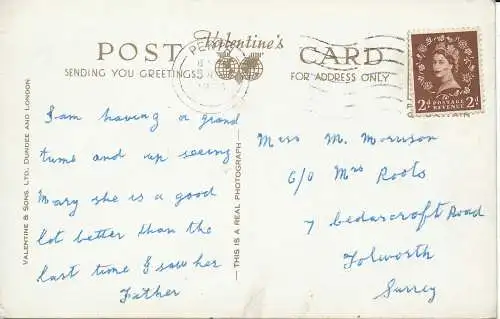 POST Valentine's CARD
SENDING YOU GREETINGS
FOR ADDRESS ONLY
2d POSTAGE REVENUE 2d
VALENTINE & SONS LTD., DUNDEE AND LONDON
I am having a grand
time and up seeing
Mary she is a good
lot better than the
last time I saw her
Father
THIS IS A REAL PHOTOGRAPH
Miss M. Morrison
C/O Mrs Roots
7 Cedarcroft Road
Tolworth
Surrey